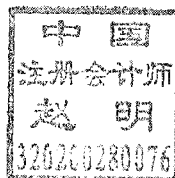 中国
注册会计师
赵明
320200280076